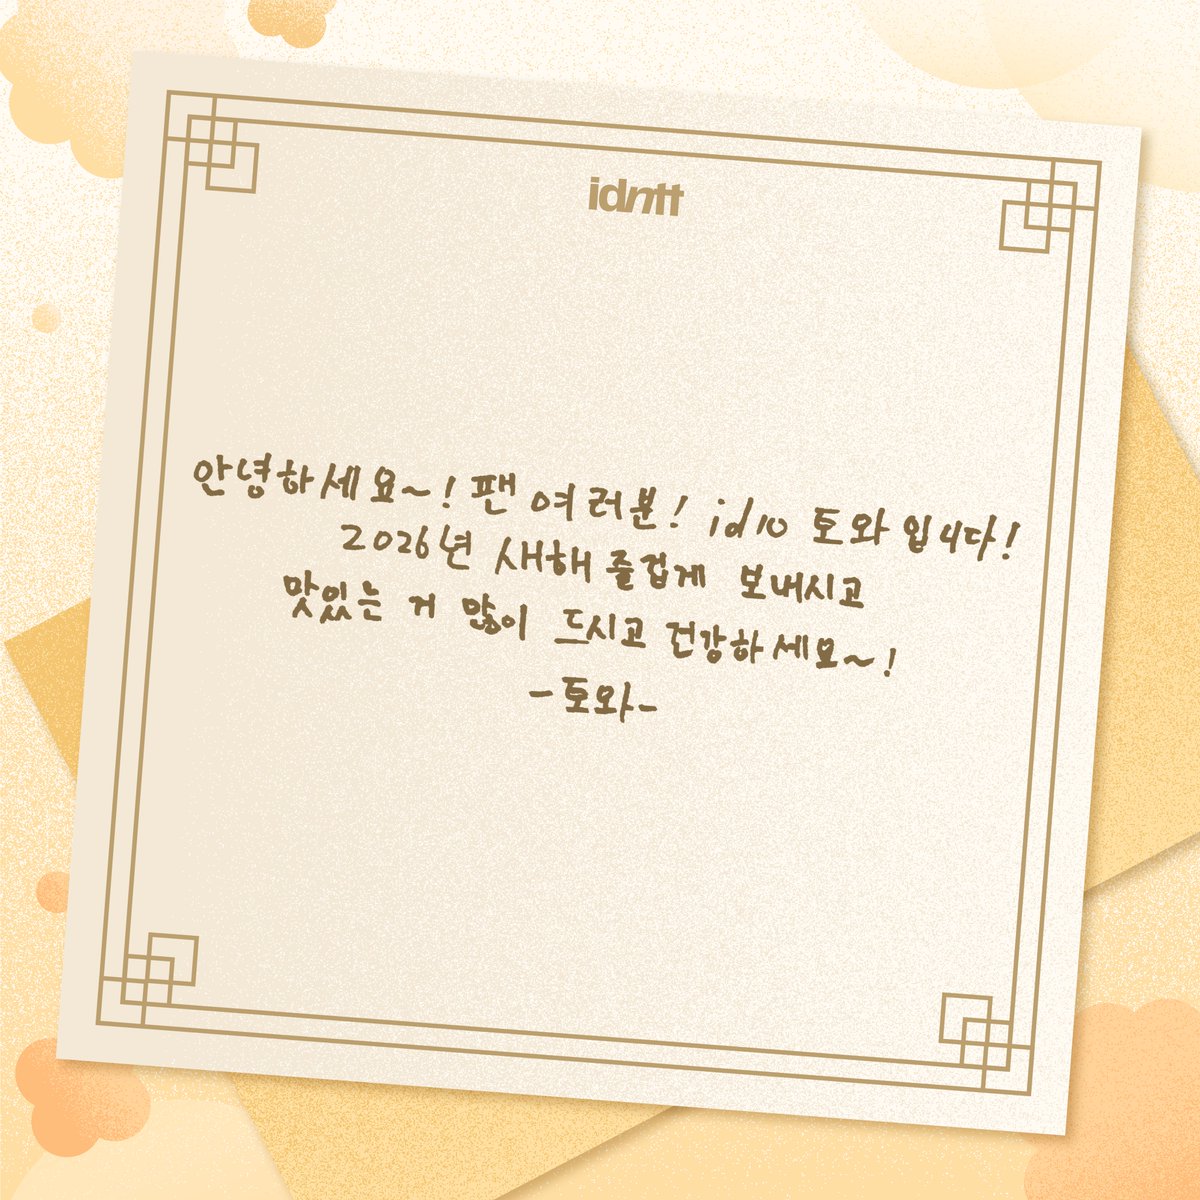 idntt
안녕하세요~! 팬 여러분! id10 토와입니다!
2026년 새해 즐겁게 보내시고
맛있는 거 많이 드시고 건강하세요~!
-토와-